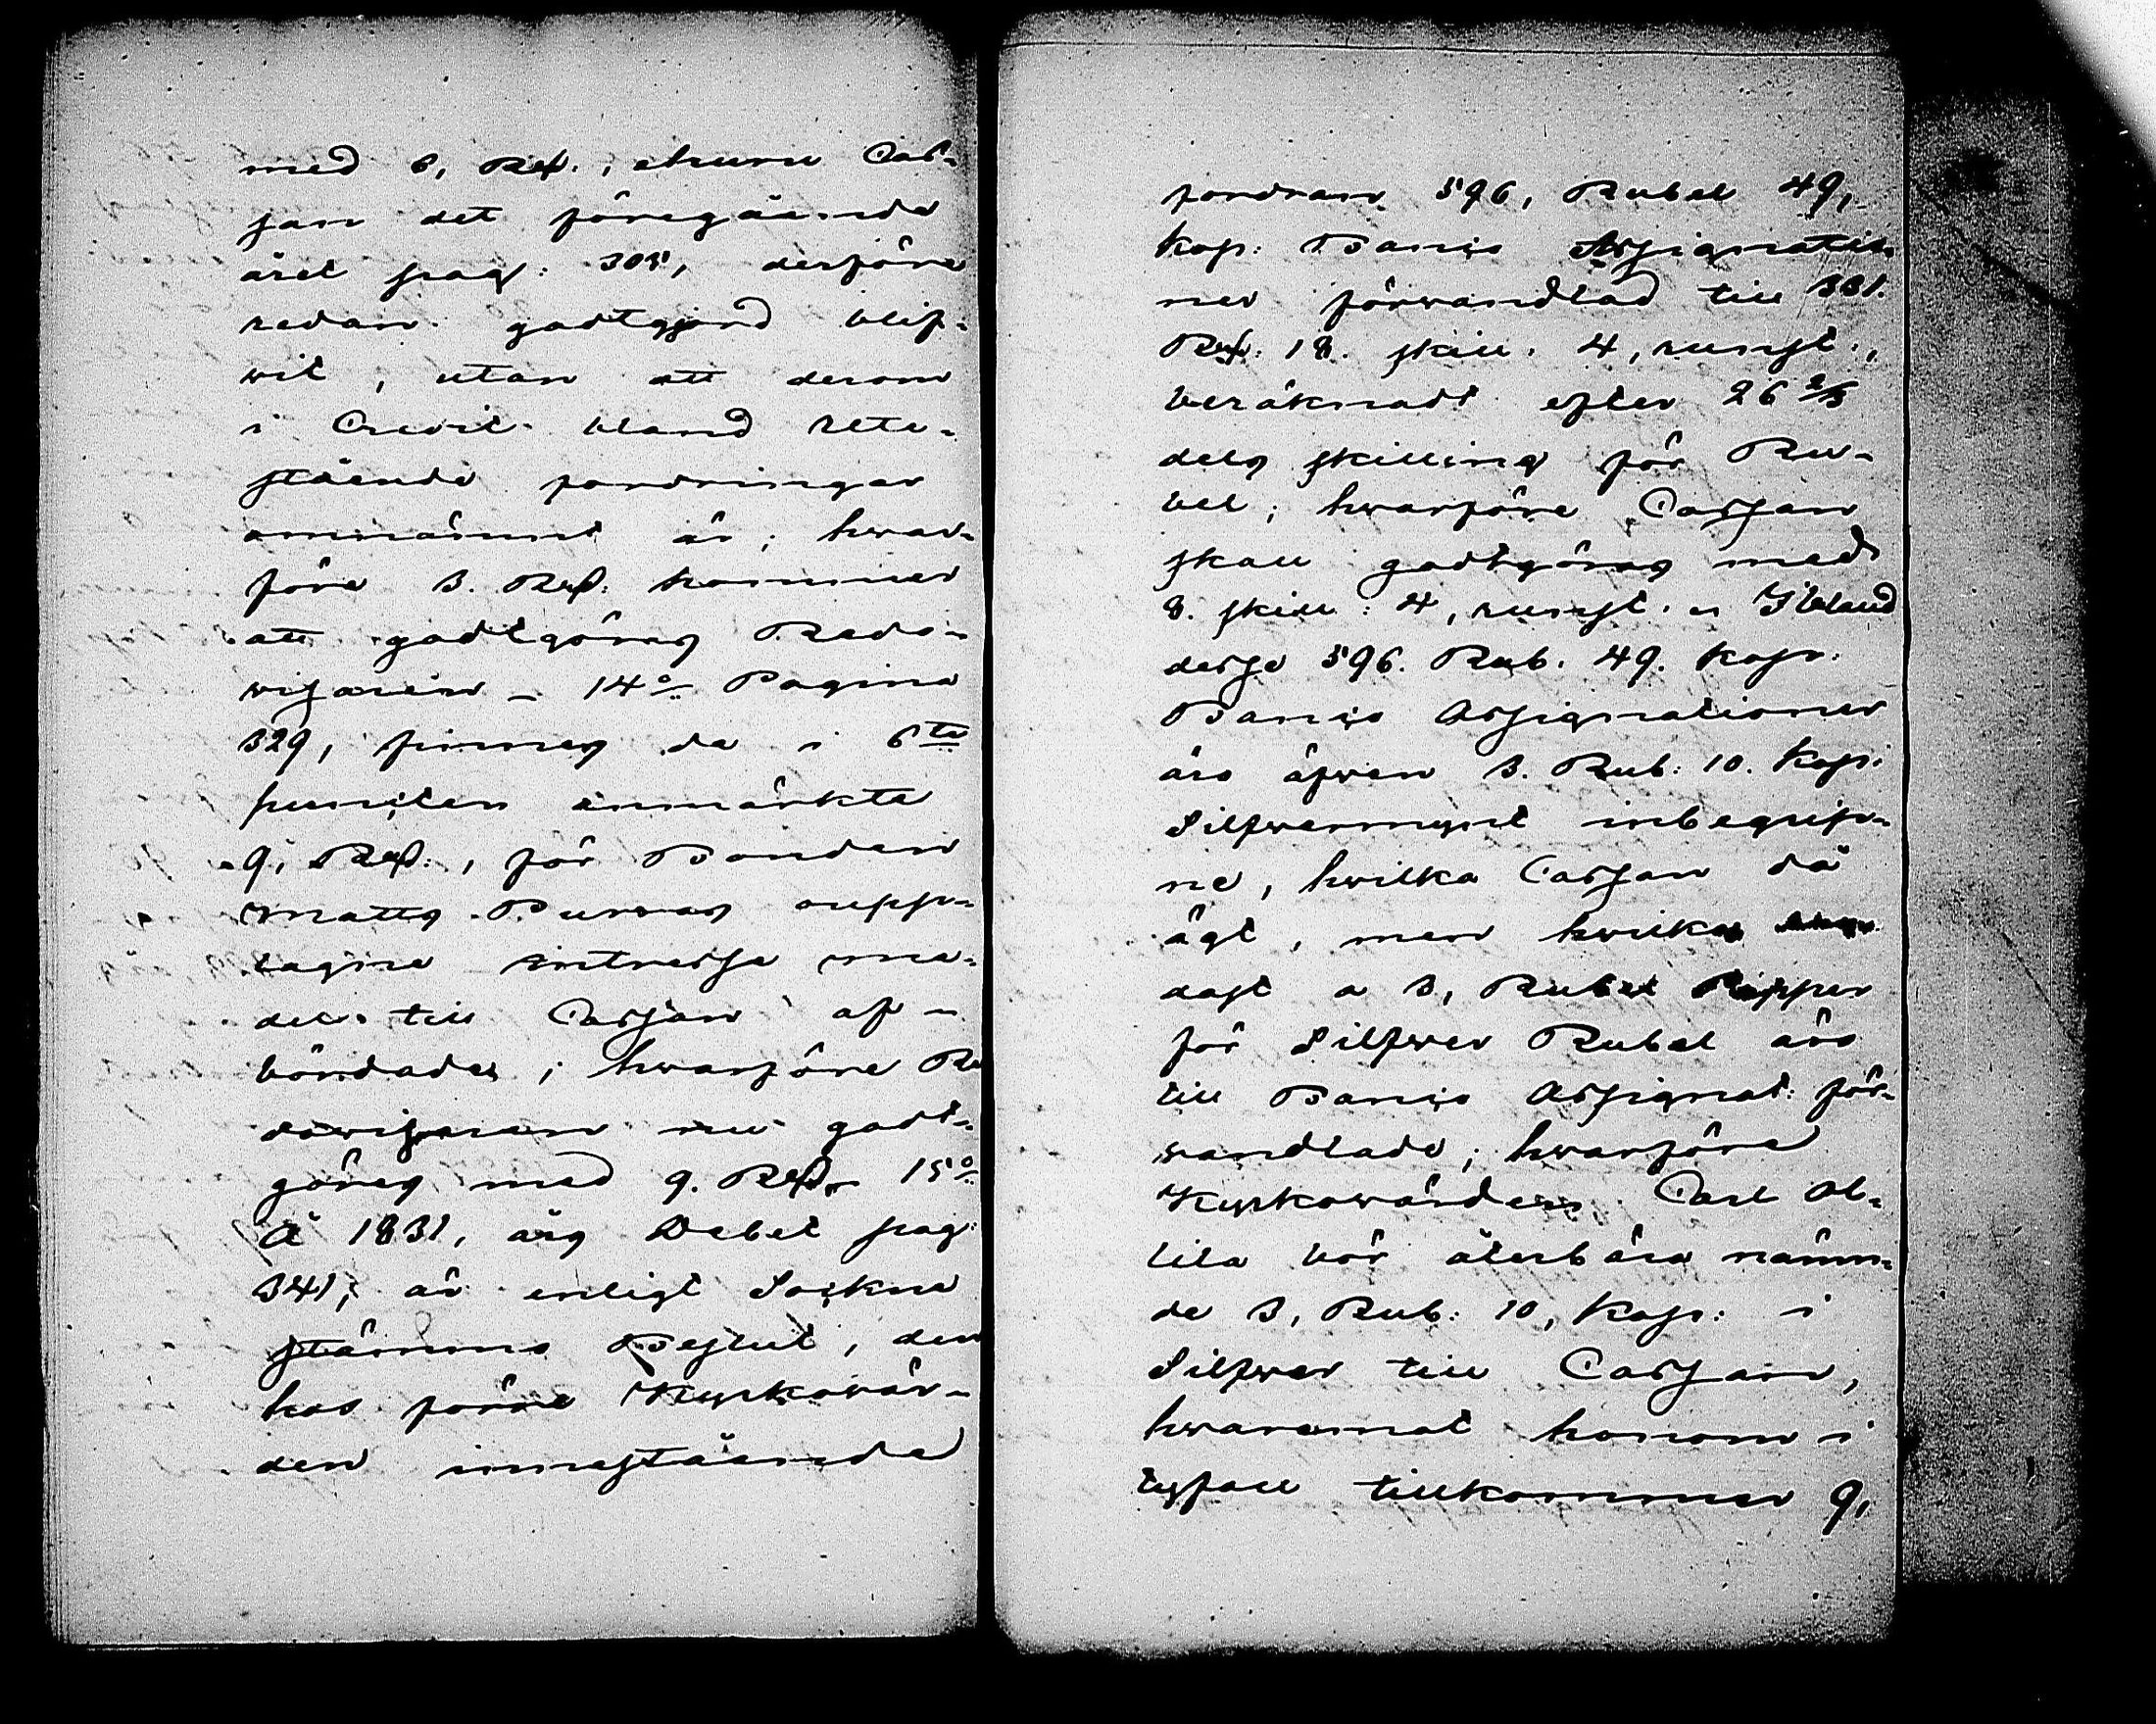 med 6, Rd. , ehuru Cas¬
san det föregående
året pag: 305, derföre
redan godtgjord blif¬
vit , utan att derom
i Credit bland rete¬
stående fordringar
omnämnt är ; hvar¬
före 3. Rd. kommer
att godtgöras Redo¬
visaren – 14:o Pagina
329, finnes de i 6:te
puncten anmärkte
9, Rd. , för Bonden
Matts Purras upp¬
tagne Intresse me¬
del till Cassan af¬
bördades ; hvarföre Re
dovisaren nu godt¬
göres med 9. Rd. – 15:o
Å 1831, års Debet pag:
341, är enligt Sockne
stämmo Beslut , den
hos förre Kyrkovär¬
den innestående
fordran 596, Rubel 49,
kop: Banco Assignatio¬
ner förvandlad till 331.
Rd: 18. skill. 4, runst.,
beräknadt efter 26 2/3
dels skilling för Ru¬
bel ; hvarföre Cassan
skall godtgöras med
8. skill: 4, runst. – Ibland
desse 596. Rub. 49. kop:
Banco Assignationer
äro äfven 3. Rub: 10. kop:
Silfvermynt inbegrip¬
ne , hvilka Cassan då
ägt , men hvilka
dast a 3, Rubel Papper
för Silfver Rubel äro
till Banco Assignat: för¬
vandlade ; hvarföre
Kyrkovärden Carl Ol¬
lila bör återbära nämn¬
de 3, Rub: 10, kop: i
Silfver till Cassan,
hvaremot honom i
tysfall tillkommer 9,